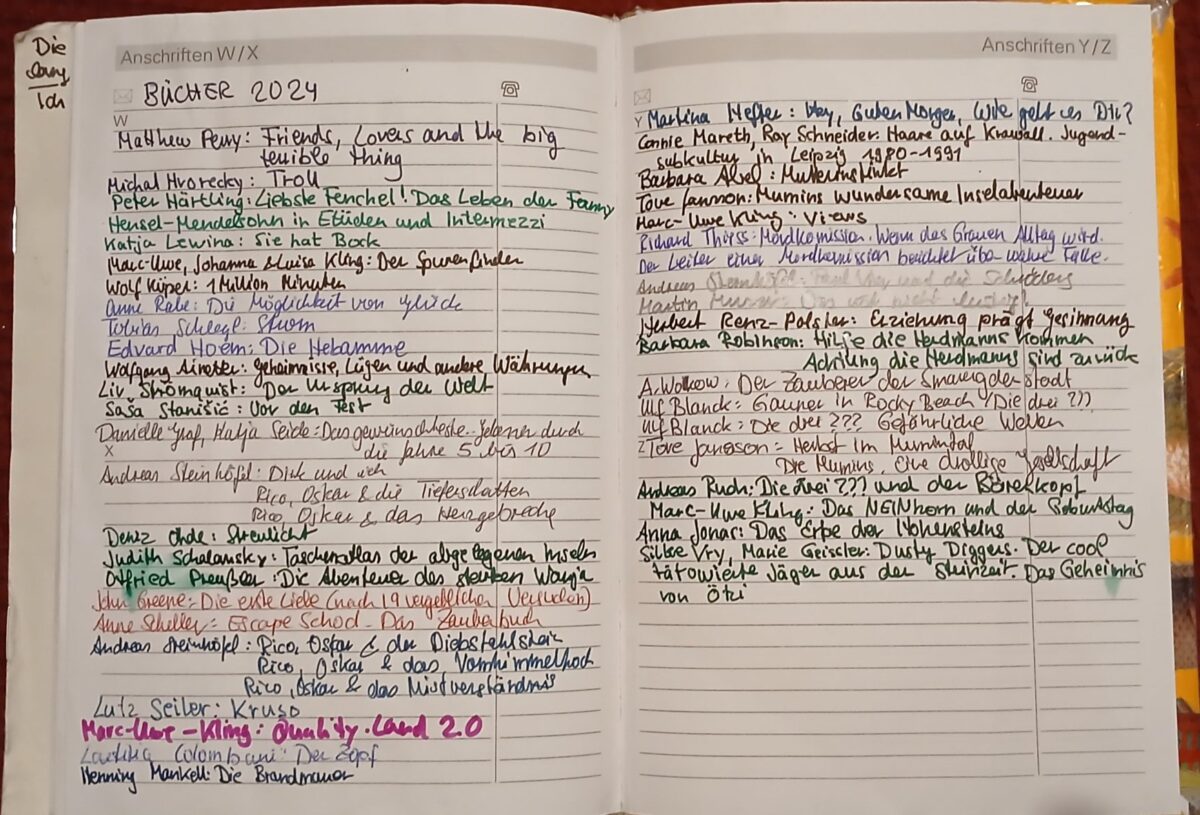 Die
Ich
Anschriften W/X
BÜCHER 2024
W
Matthew Perry: Friends, Lovers and the big
terrible thing
Michal Hvorecky: Troll
Peter Härtling: Liebste Fenchel! Das Leben der Fanny
Hensel-Mendelsohn in Etüden und Intermezzi
Katja Lewina: Sie hat Bock
Marc-Uwe, Johanna & Luisa Kling: Der Spurenfinder
Wolf Küper: 1 Million Minuten
Anne Rabe: Die Möglichkeit von Glück
Tobias Schlegl: Strom
Edvard Hoem: Die Hebamme
Wolfgang : Geheimnisse, Lügen und andere Währungen
Liv Strömquist: Der Ursprung der Welt
Saša Stanišić: Vor dem Fest
Danielle Graf, Katja Seide: Das gewünschteste durch
X
die Jahre 5 bis 10
Andreas Steinhöfel: Dirk und ich
Rico, Oskar & die Tieferschatten
Rico, Oskar & das Herzgebreche
Deniz Ohde: Streulicht
Judith Schalansky: Taschenatlas der abgelegenen Inseln
Otfried Preußler: Die Abenteuer des starken Wanja
John Greene: Die erste Liebe (nach 19 vergeblichen Versuchen)
Anne Scheller: Escape School - Das Zauberbuch
Andreas Steinhöfel: Rico, Oskar & der Diebstahlstein
Rico, Oskar & das Vomhimmelhoch
Rico, Oskar & das Mistverständnis
Lutz Seiler: Kruso
Marc-Uwe-Kling: Quality-Land 2.0
Laetitia Colombani: Der Zopf
Henning Mankell: Die Brandmauer
Anschriften Y/Z
Y
Martina Hefter: Hey, Guten Morgen, Wie geht es Dir?
Connie Mareth, Ray Schneider: Haare auf Krawall. Jugend-
subkultur in Leipzig 1980-1991
Barbara : Mutterinstinkt
Tove Jansson: Mumins wundersame Inselabenteuer
Marc-Uwe Kling: Views
Richard Thiess: Mordkomission. Wenn das Grauen Alltag wird.
Der Leiter einer Mordkomission berichtet über wahre Fälle.
Andreas Steinhöfel: Paul Vier und die Schröders
Martin
Herbert Renz-Polster: Erziehung prägt Gesinnung
Barbara Robinson: Hilfe die Herdmanns kommen
Achtung die Herdmanns sind zurück
A. Wolkow: Der Zauberer der Smaragdenstadt
Ulf Blanck: Gauner in Rocky Beach / Die drei ???
Ulf Blanck: Die drei ??? Gefährliche Wellen
Z
Tove Jansson: Herbst im Mumintal
Die Mumins, Eine drollige Gesellschaft
Andreas Ruch: Die drei ??? und der Börekkopf
Marc-Uwe Kling: Das NEINhorn und der Geburtstag
Anna Jonas: Das Erbe der Hohensteins
Silke Vry, Marie Geissler: Dusty Diggers. Der cool
tätowierte Jäger aus der Steinzeit. Das Geheimnis
von Ötzi